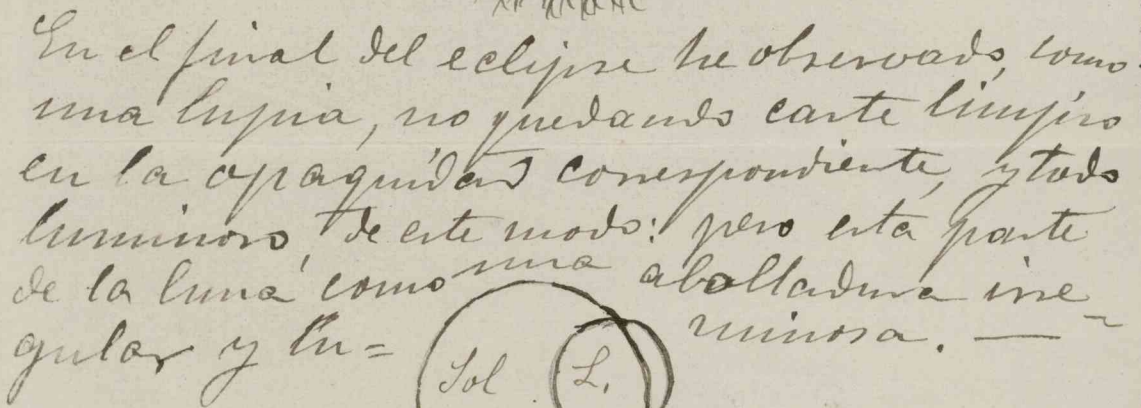 En el final del eclipse he observado, como
una lupia, no quedando carte limpio
en la opaquidad correspondiente, y todo
luminoso, de este modo: pero esta parte
de la luna como una abolladura irre-
gular y lu= minosa. —
Sol L.